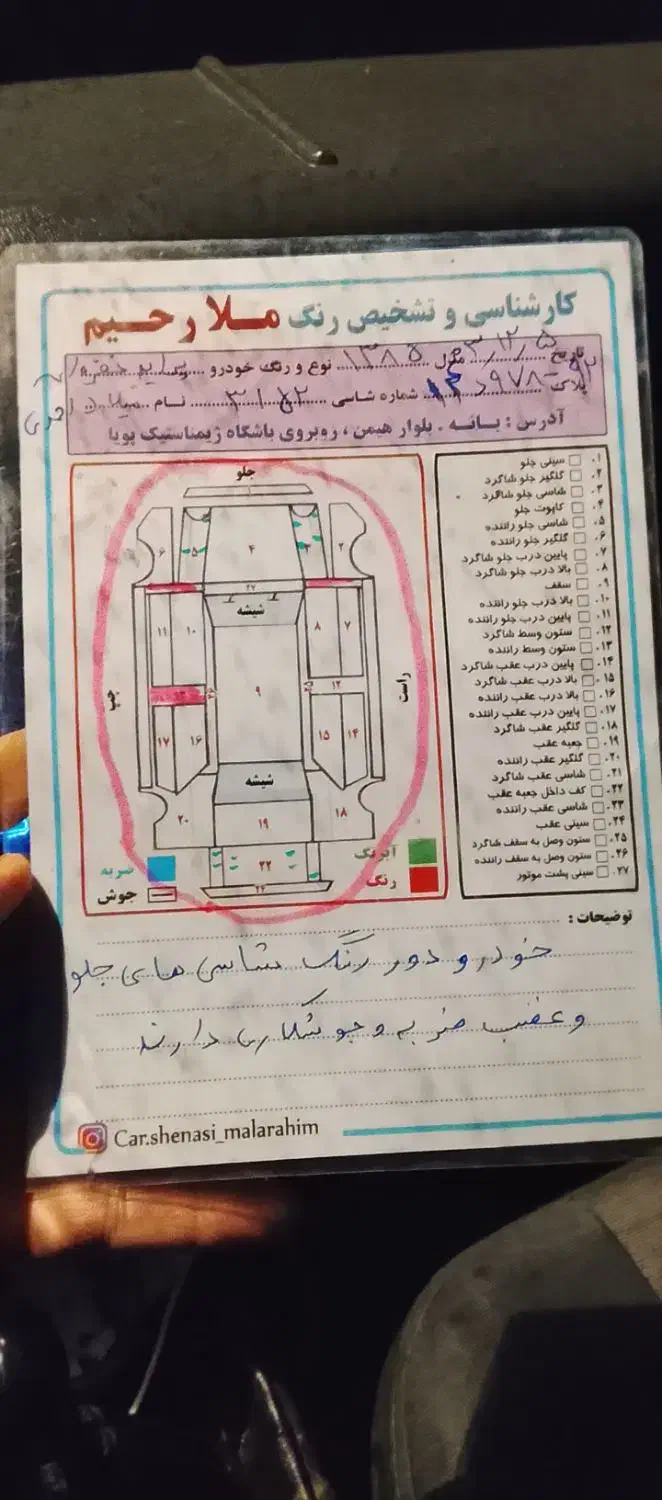 کارشناسی و تشخیص رنگ ملا رحیم
تاریخ ۳/۱۲/۵ مدل ۱۳۸۵ نوع و رنگ خودرو پراید
پلاک شماره شاسی نام
آدرس : بانه . بلوار هیمن ، روبروی باشگاه ژیمناستیک پویا
۱. سینی جلو
۲. گلگیر جلو شاگرد
۳. شاسی جلو شاگرد
۴. کاپوت جلو
۵. شاسی جلو راننده
۶. گلگیر جلو راننده
۷. پایین درب جلو شاگرد
۸. بالا درب جلو شاگرد
۹. سقف
۱۰. بالا درب جلو راننده
۱۱. پایین درب جلو راننده
۱۲. ستون وسط شاگرد
۱۳. ستون وسط راننده
۱۴. پایین درب عقب شاگرد
۱۵. بالا درب عقب شاگرد
۱۶. بالا درب عقب راننده
۱۷. پایین درب عقب راننده
۱۸. گلگیر عقب شاگرد
۱۹. جعبه عقب
۲۰. گلگیر عقب راننده
۲۱. شاسی عقب شاگرد
۲۲. کف داخل جعبه عقب
۲۳. شاسی عقب راننده
۲۴. سینی عقب
۲۵. ستون وصل به سقف شاگرد
۲۶. ستون وصل به سقف راننده
۲۷. سینی پشت موتور
جلو
۲ ۴ ۵ ۶
۲۷
شیشه
۷ ۸ ۱۰ ۱۱
راست ۹ چپ
۱۲
۱۴ ۱۵ ۱۶ ۱۷
شیشه
۱۸ ۱۹ ۲۰
۲۲
۲۴
آبرنگ
رنگ
ضربه
جوش
توضیحات :
خودرو دور رنگ شاسی های جلو
و عقب ضربه و جوشکاری دارند
Car.shenasi_malarahim